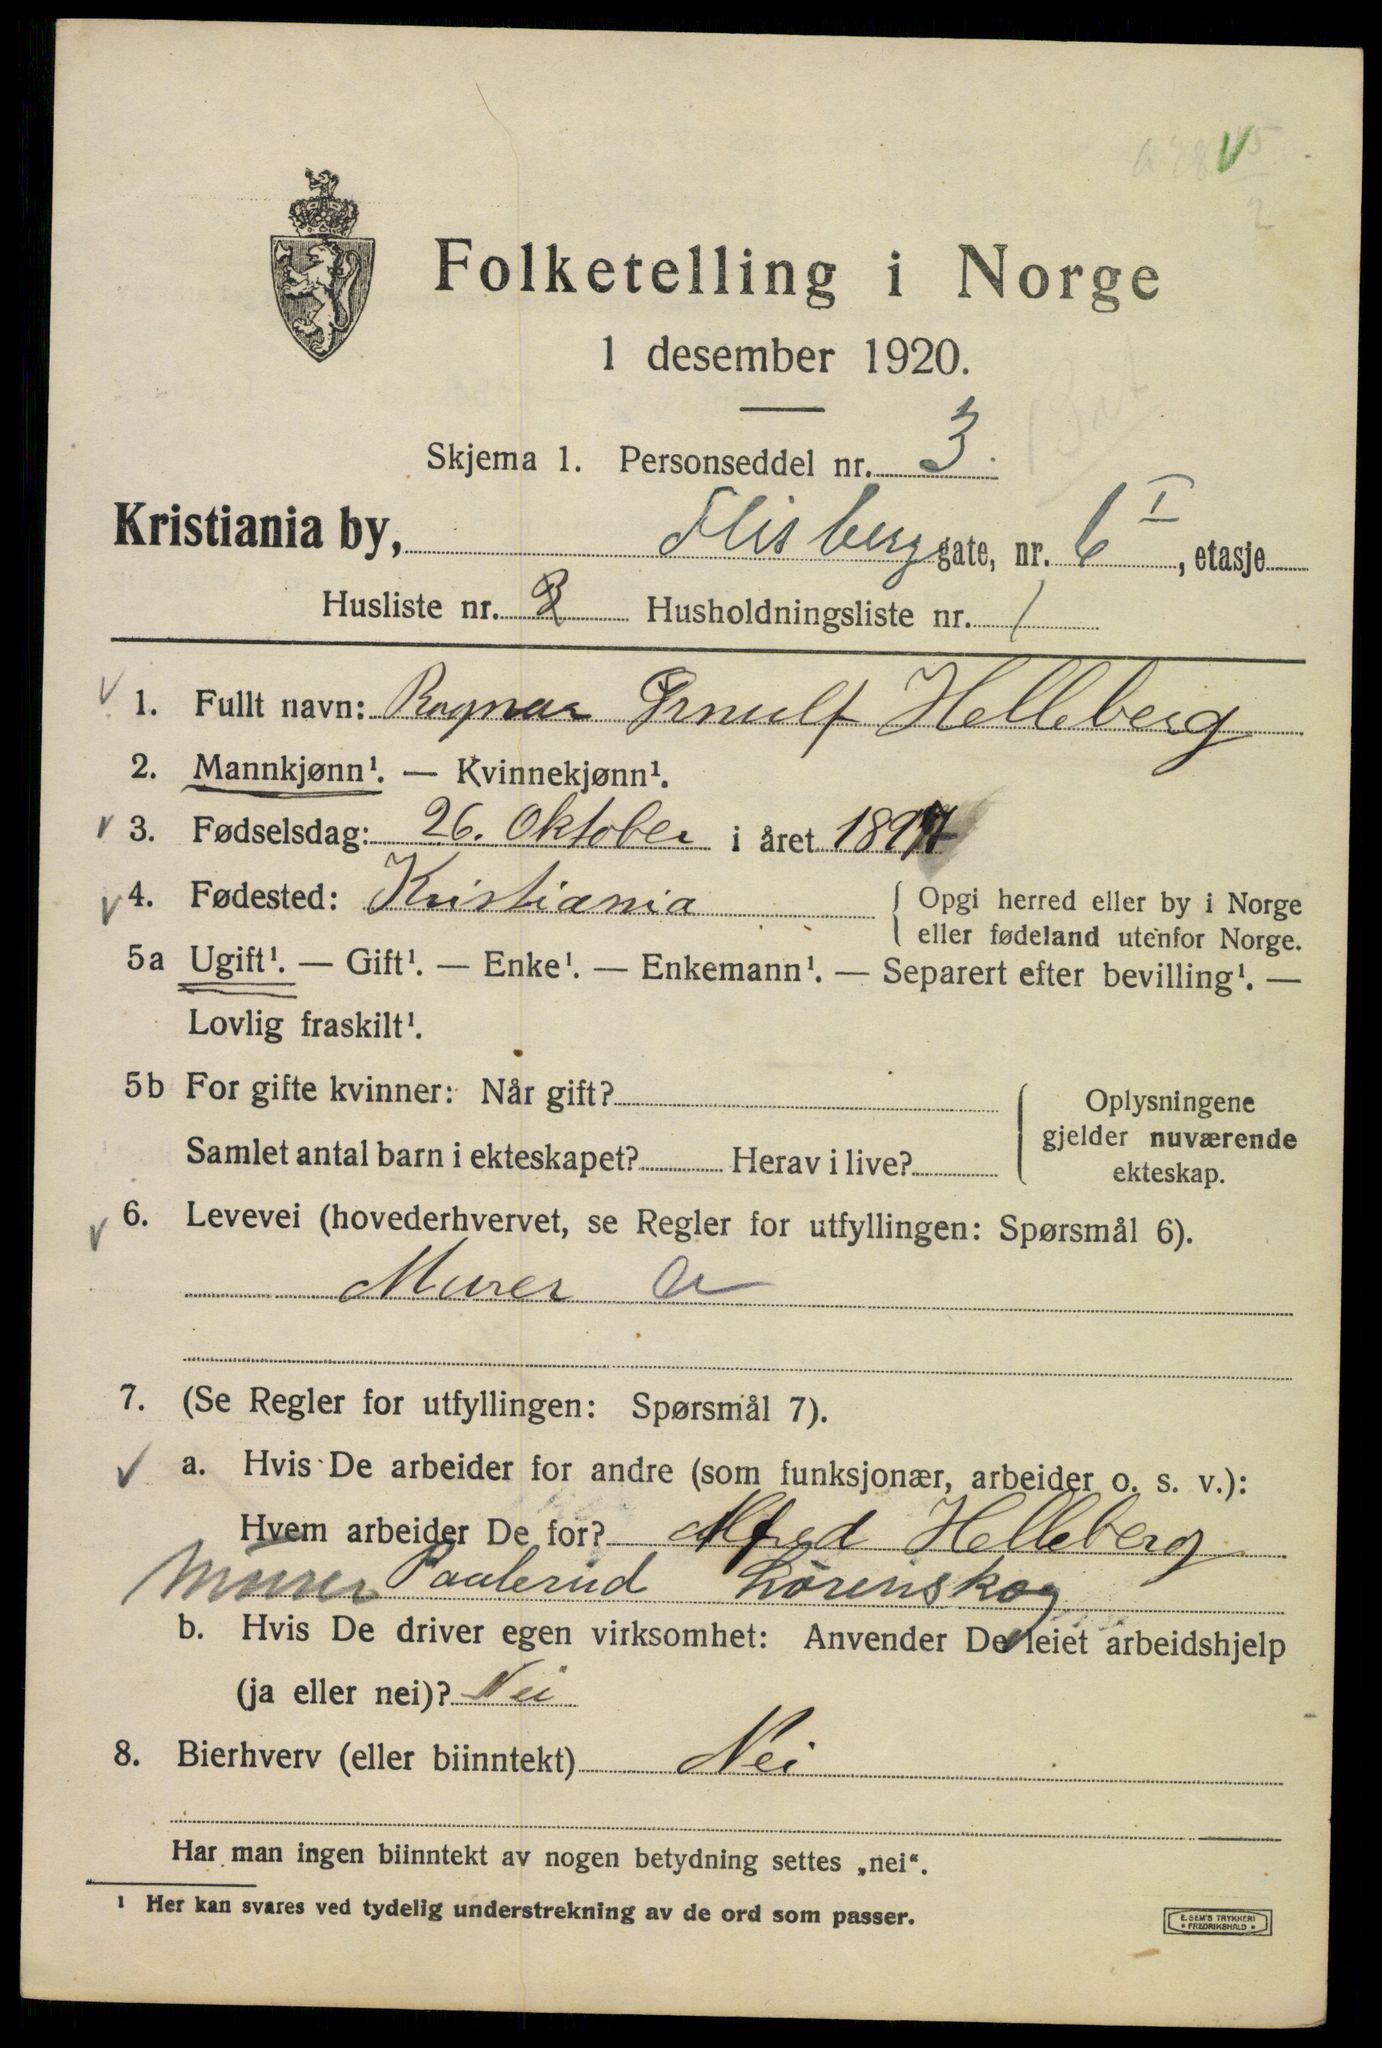 Folketelling i Norge
1 desember 1920.
Skjema 1. Personseddel nr. 3.
Kristiania by, Flisberg gate, nr. 6 I, etasje
Husliste nr. 2 Husholdningsliste nr. 1
1. Fullt navn: Ragnar Ørnulf Helleberg
2. Mannkjønn¹. — Kvinnekjønn¹.
3. Fødselsdag: 26. Oktober i året 1897
4. Fødested: Kristiania { Opgi herred eller by i Norge
eller fødeland utenfor Norge.
5a Ugift¹. — Gift¹. — Enke¹. — Enkemann¹. — Separert efter bevilling¹. —
Lovlig fraskilt¹.
5b For gifte kvinner: Når gift? { Oplysningene
gjelder nuværende
Samlet antal barn i ekteskapet? Herav i live?
ekteskap.
6. Levevei (hovederhvervet, se Regler for utfyllingen: Spørsmål 6).
Murer a
7. (Se Regler for utfyllingen: Spørsmål 7).
a. Hvis De arbeider for andre (som funksjonær, arbeider o. s. v.):
Hvem arbeider De for? Alfred Helleberg
Murer Paulerud Lørenskog
b. Hvis De driver egen virksomhet: Anvender De leiet arbeidshjelp
(ja eller nei)? Nei
8. Bierhverv (eller biinntekt) Nei
Har man ingen biinntekt av nogen betydning settes „nei“.
¹ Her kan svares ved tydelig understrekning av de ord som passer.
E. SEM'S TRYKKERI
* FREDRIKSHALD *